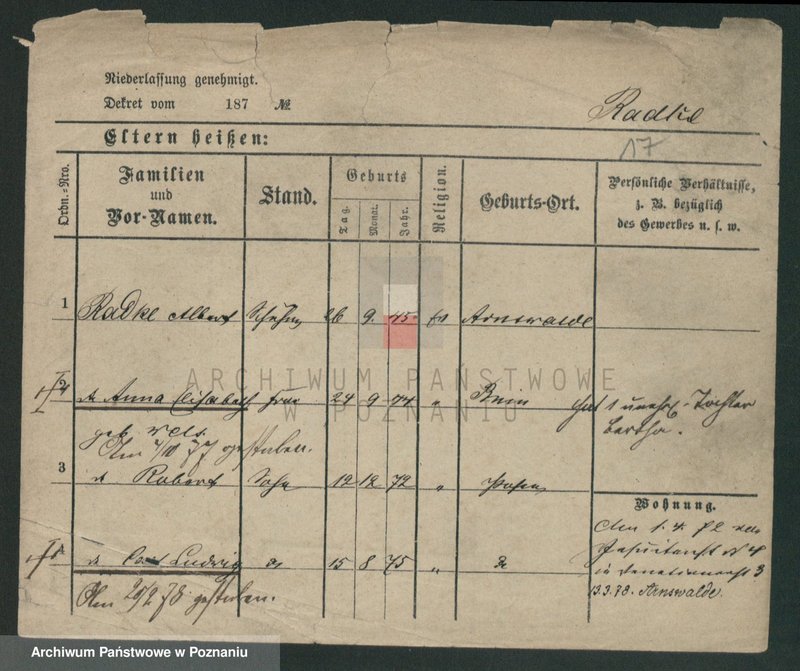 Niederlassung genehmigt.
Dekret vom 187 №
Radke
17
Eltern heißen:
Ordn.-Nro.
Familien und Vor-Namen.
Stand.
Geburts
Tag.
Monat.
Jahr.
Religion.
Geburts-Ort.
Persönliche Verhältnisse, z. B. bezüglich des Gewerbes u. s. w.
1 Radke Albert 26 9. 45 Ev Arnswalde
2 Anna Elisabeth Frau 24 9 44 " Bnin hat 1 unehl. Tochter
Bertha.
geb.
Am 4/10 77 gestorben.
3 Robert Sohn 12 12 72 " Posen
Wohnung.
Am 1. 4. 72
Jesuitenst N 4
Ludwig 15 8 75 "
in 3
Am 20/2 78 gestorben.
13.3.78. Arnswalde.
ARCHIWUM PAŃSTWOWE
W POZNANIU
Archiwum Państwowe w Poznaniu